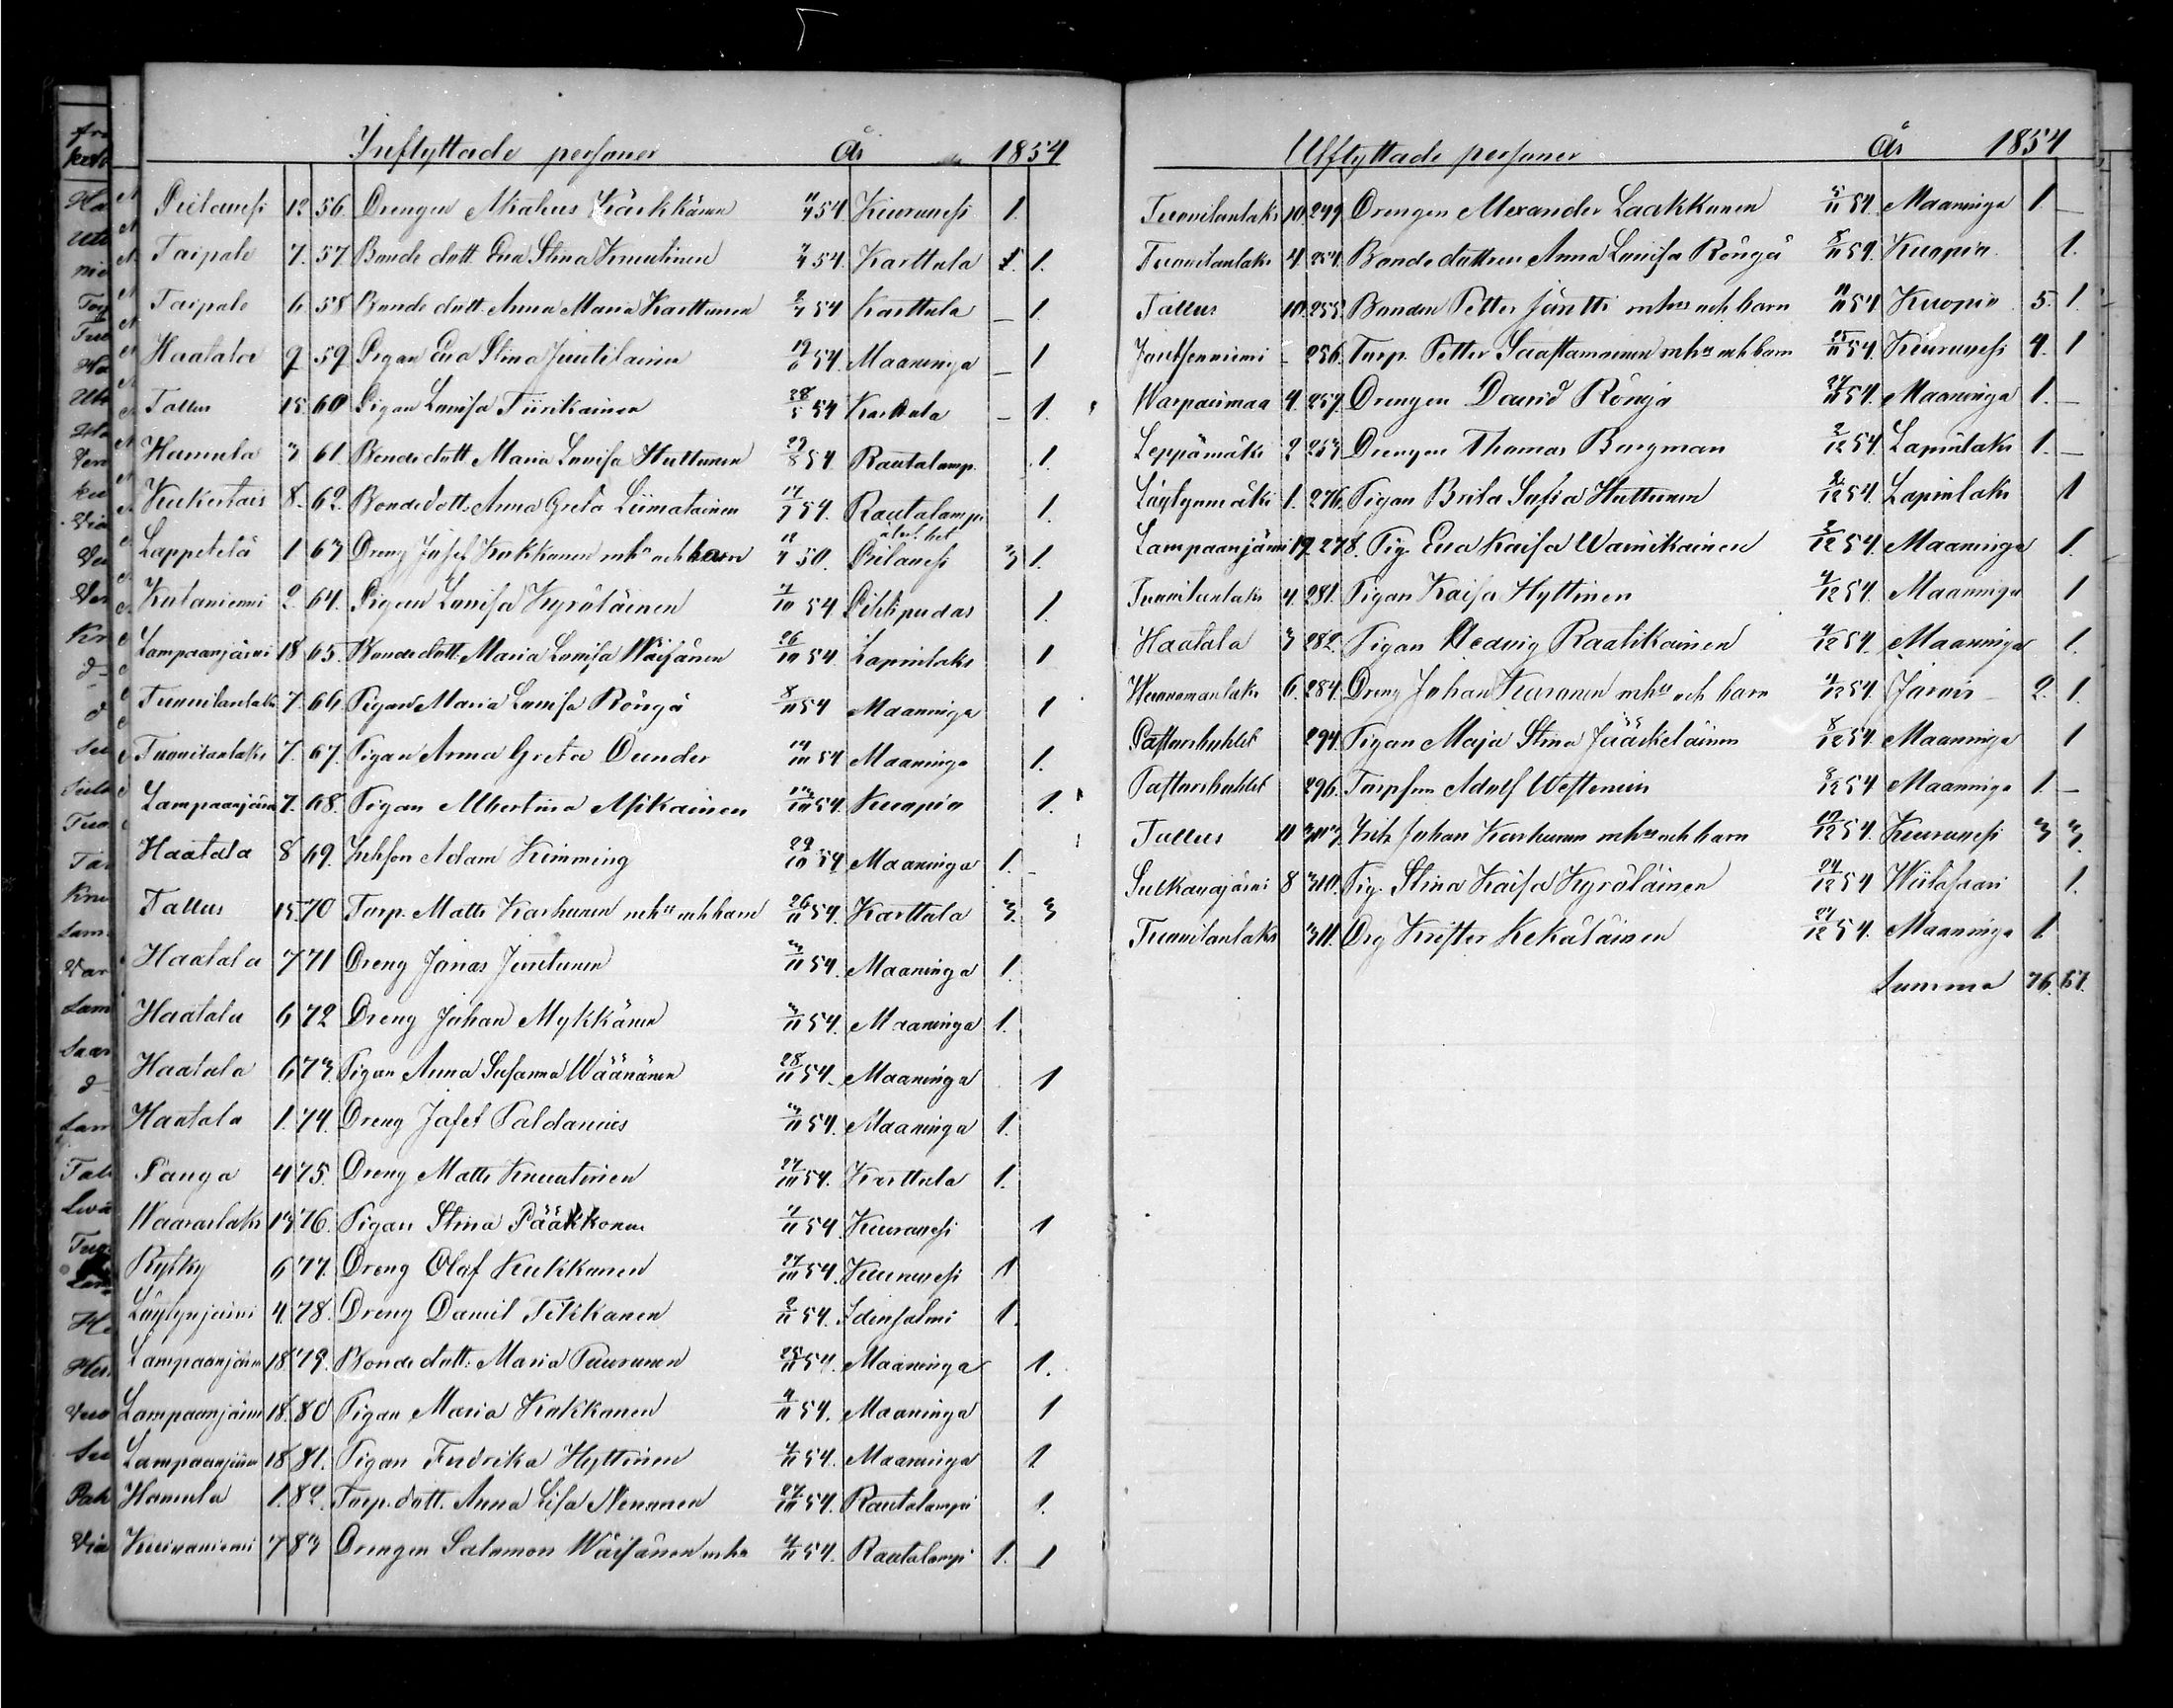 Inflyttade personer År 1854
Pielavesi 12 56. Drengen Makus Kärkkänen 11/4 54 Kiuruvesi 1.
Taipale 7. 57. Bonde dott. Eva Stina Knuutinen 54. Karttula 1. 1.
Taipale 6 58 Bonde dott. Anna Maria Karttunen 54 Karttula – 1.
Haatala 9 59 Pigan Eva Stina Juutilainen 19/6 54. Maaninga – 1
Tallus 15 60 Pigan Lovisa Tiirikainen 28/5 54 Karttula – 1.
Hamula 3 61. Bonde dott Maria Lovisa Huttunen 29/8 54 Rautalamp. 1.
Kukertais 8. 62. Bonde dott. Anna Greta Liimatainen 17/7 54. Rautalampi 1.
Lappetelä 1 63 Dreng Josef Kukkonen mhu och barn 50. Pielavesi 3 1.
Kutaniemi 2. 64. Pigan Lovisa Kyröläinen 1/10 54 Pihtipudas 1.
Lampaanjärvi 18 65. Bonde dott. Maria Lovisa Wäisänen 26/10 54 Lapinlaks 1
Tuovilanlaks 7. 66 Pigan Maria Lovisa Röngä 8/11 54 Maaninga 1
Tuovilanlaks 7. 67. Pigan Anna Greta Dunder 14/10 54 Maaninga 1.
Lampaanjärvi 7. 68. Pigan Albertina Asikainen 13/10 54. Kuopio 1.
Haatala 8 69. Adam Kimming 29/10 54 Maaninga 1. –
Tallus 15. 70 Torp. Matts Karhunen mhu och barn 26/11 54. Karttula 3. 3
Haatala 7 71 Dreng Jonas Juntunen 3/11 54. Maaninga 1.
Haatala 6 72 Dreng Johan Mykkänen 3/11 54. Maaninga 1.
Haatala 6 73. Pigan Anna Susanna Wäänänen 28/11 54. Maaninga 1
Haatala 1. 74. Dreng Josef Paldanius 3/11 54. Maaninga 1.
Panga 4 75. Dreng Matts Knuutinen 27/10 54. Karttula 1.
Waaraslaks 13 76. Pigan Stina Pääkkönen 1/11 54 Kiuruvesi 1
Rytky 6 77. Dreng Olof Kukkonen 27/10 54. Kiuruvesi 1
Löytynjärvi 4. 78. Dreng Daniel Tikkanen 2/11 54. Idensalmi 1.
Lampaanjärvi 18. 79. Bonde dott. Maria Puurunen 25/11 54. Maaninga 1.
Lampaanjärvi 18. 80 Pigan Maria Kukkonen 4/11 54. Maaninga 1
Lampaanjärvi 18 81. Pigan Fredrika Hyttinen 4/11 54. Maaninga 1.
Hamula 1. 82. Torp. dott. Anna Lisa Nenonen 27/10 54. Rautalampi 1.
Kuivaniemi 7 83 Drengen Salomon Wäisänen mhu 4/11 54. Rautalampi 1. 1
Utflyttade personer År 1854
Tuovilanlaks 10. 249. Drengen Alexander Laakkonen 5/11 54. Maaninga 1 –
Tuovilanlaks 4. 254. Bonde dottren Anna Lovisa Röngä 8/11 54. Kuopio 1.
Tallus 10. 255. Bonden Petter Jäntti mhu och barn 11/11 54 Kuopio 5. 1.
– 256. Torp. Petter Saastamoinen mhu och barn 25/11 54. Kiuruvesi 4. 1
Warpasimaa 4. 259. Drengen David Röngä 54. Maaninga 1. –
Leppämäki 2 253 Drengen Thomas Borgman 2/12 54. Lapinlaks 1. –
Löytynmäki 1. 276. Pigan Brita Sofia Huttunen 2/12 54. Lapinlaks 1
Lampaanjärvi 19. 278. Pig. Eva Kaisa Wainikainen 2/12 54. Maaninga 1.
Tuovilanlaks 4. 281. Pigan Kaisa Hyttinen 4/12 54. Maaninga 1
Haatala 3 282. Pigan Hedvig Raatikainen 4/12 54. Maaninga 1.
Wennomanlaks 6. 284. Dreng Johan Kuronen mhu och barn 4/12 54. Jorois 2. 1.
Pastorsbohlet 294. Pigan Maja Stina Jääskeläinen 8/12 54. Maaninga 1
Pastorsbohlet 296. Torpson Adolf Westenius 8/12 54. Maaninga 1. –
Tallus 11 Johan Karhunen mhu och barn 54. Kiuruvesi 3 3.
Sulkavajärvi 8 310. Pig. Stina Kaisa Kyröläinen 24/12 54 Wiitasaari 1.
Tuovilanlaks 311. Drg Krister Kekäläinen 27/12 54. Maaninga 1.
Summa 76. 67.